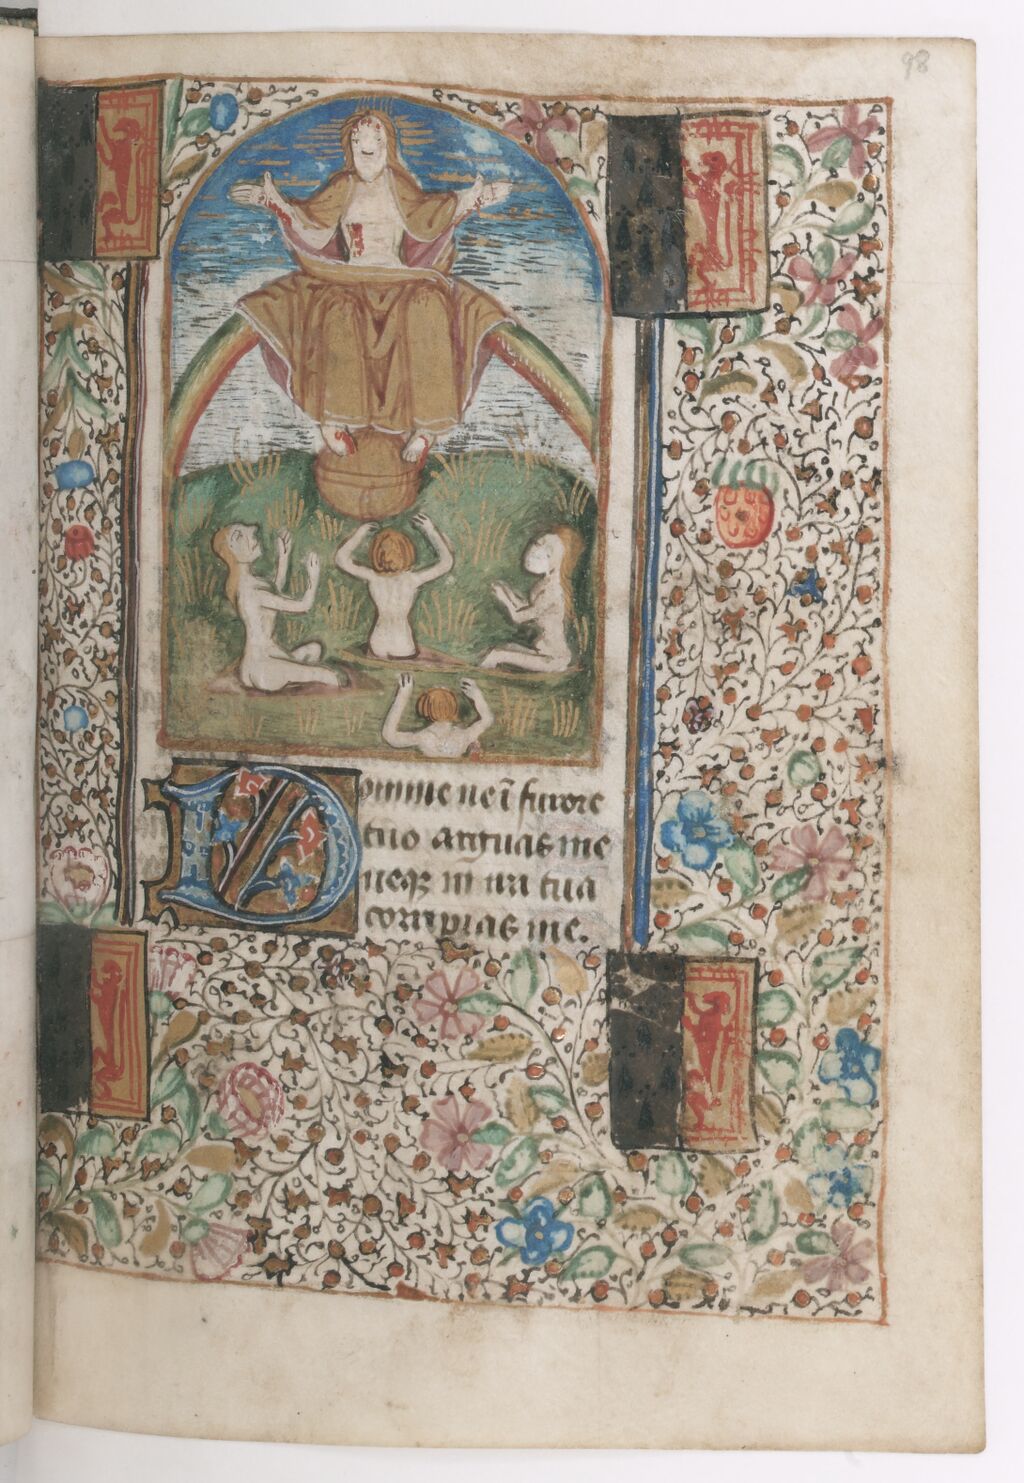 98
Domine ne ī furore
tuo arguas me
neqꝫ in ira tua
corripias me.